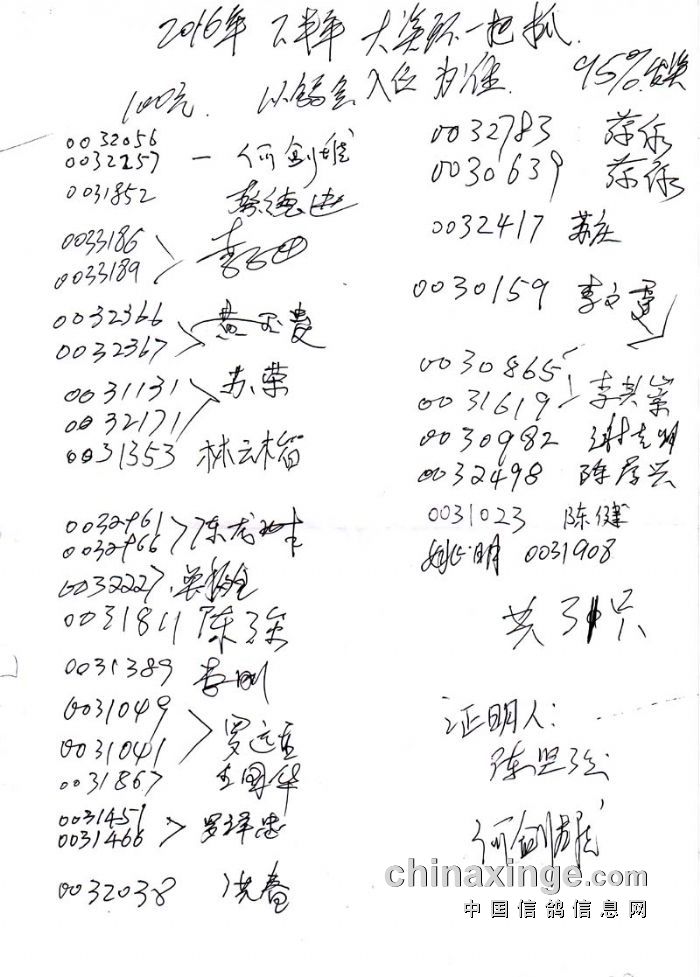 2016年 下半年 大奖环一把抓
100元. 以 入位为准. 95%发奖
0032056
0032257 — 何剑雄
0031852 蔡德忠
0033186
0033189 李
0032366
0032367 黄
0031131
0032171 苏荣
0031353 林云楷
0032961
0032966 陈龙
0032227
0031811 陈
0031389 李刚
0031049
0031041 罗运
0031867 王国华
0031451
0031466 罗泽忠
0032038 洗春
0032783
0030639
0032417 苏庄
0030159 李文
0030865
0031619 李
0030982 谢志明
0032498 陈彦兴
0031023 陈健
姚明 0031908
共31只
证明人:
陈坚强
何剑雄
chinaxinge.com
中国信鸽信息网